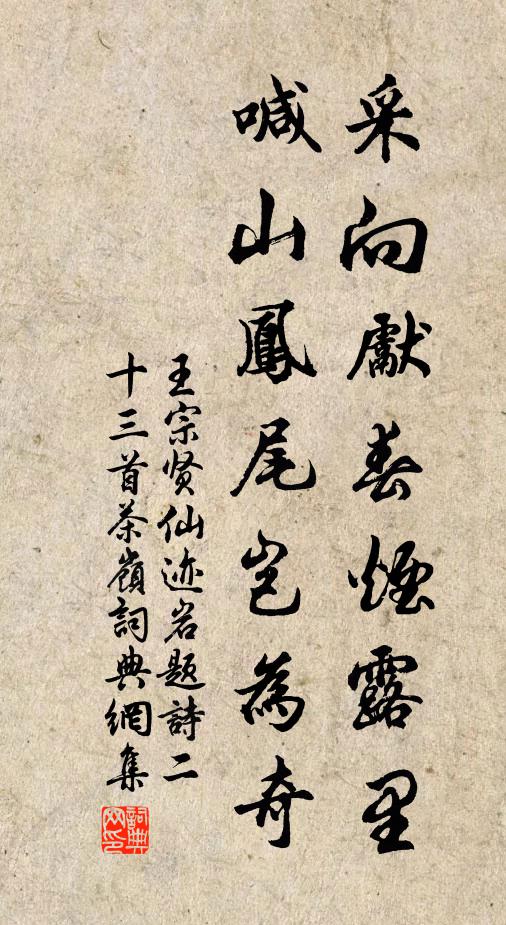 采向獻春煙露里
喊山鳳尾岂為奇
王宗贤仙迹岩题詩二
十三首茶嶺詞典網集
詞典
网印